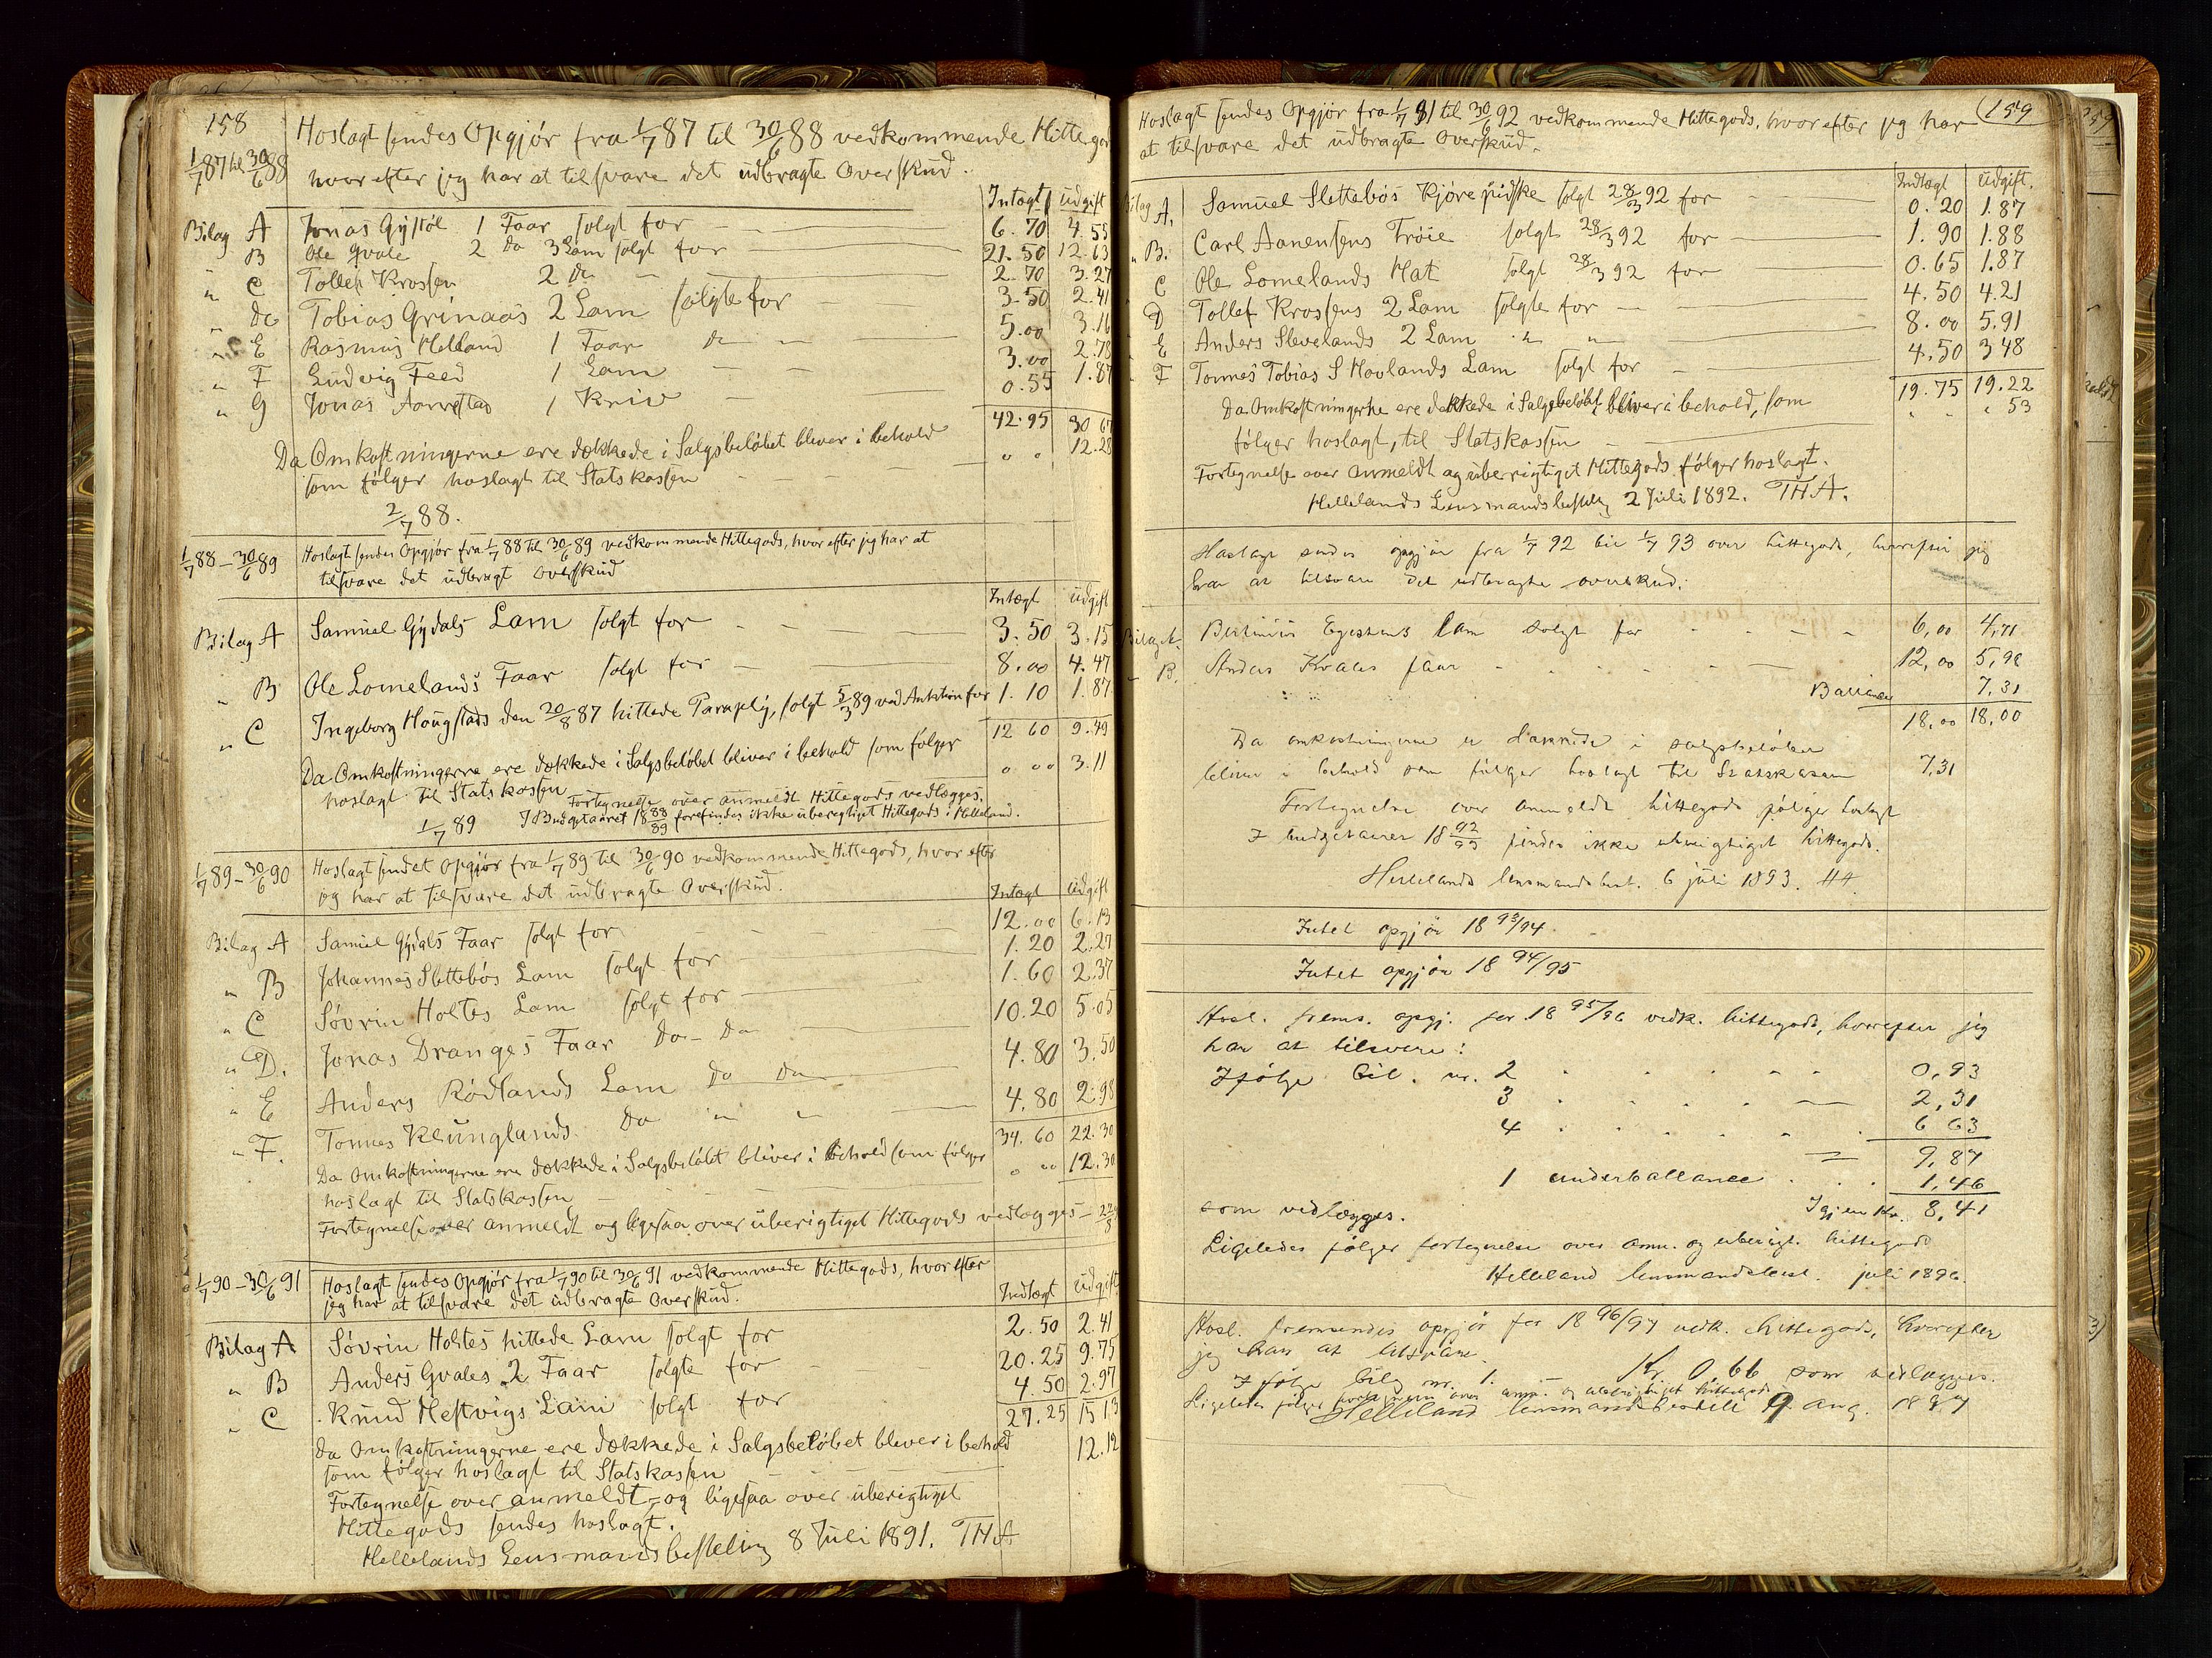 158
1/7 87 til 30/6 88
Hoslagt sendes Opgjør fra 1/7 87 til 30/6 88 vedkommende Hittegod
hvorefter jeg har at tilsvare det udbragte Overskud.
Intægt Udgift
Bilag A Jonas Gystøl 1 Faar solgt for 6.70 4.55
B Ole Gvale 2 do 3 Lam solgt for 21.50 12.63
" C Tollef Krossen 2 do — 2.70 3.27
" D Tobias Grinaas 2 Lam solgte for 3.50 2.41
" E Rasmus Helland 1 Faar do — 5.00 3.16
" F Ludvig Feed 1 Lam — 3.00 2.78
" G Jonas Aarrestad 1 Kniv 0.55 1.87
42.95 30 67
Da Omkostningerne ere dækkede i Salgsbeløbet bliver i behold " " 12.28
som følger hoslagt til Statskassen
2/7 88.
1/7 88 – 30/6 89
Hoslagt sendes Opgjør fra 1/7 88 til 30/6 89 vedkommende Hittegods, hvorefter jeg har at
tilsvare det udbragt Overskud
Intægt Udgift
Bilag A Samuel Gydals Lam solgt for 3.50 3.15
" B Ole Lomelands Faar solgt for 8.00 4.47
" C Ingeborg Hougstads den 20/8 87 hittede Paraply, solgt 5/3 89 ved Auktion for 1.10 1.87
12 60 9.49
Da Omkostningerne ere dækkede i Salgsbeløbet bliver i behold som følger " " " 3.11
hoslagt til Statskassen
Fortegnelse over anmeldt Hittegods vedlægges.
1/7 89 I Budgetaaret 18 88/89 forefindes ikke uberigtiget Hittegods i Helleland.
1/7 89 – 30/6 90
Hoslagt sendet Opgjør fra 1/7 89 til 30/6 90 vedkommende Hittegods, hvorefter
jeg har at tilsvare det udbragte Overskud.
Intægt Udgift
Bilag A Samuel Gydals Faar solgt for 12.00 6.13
" B Johannes Slettebøs Lam solgt for 1.20 2.27
" C Søvrin Holtes Lam solgt for 1.60 2.37
" D. Jonas Dranges Faar Do – Do 10.20 5.05
" E Anders Rødlands Lam Do Do 4.80 3.50
" F. Tonnes Klunglands Do " " 4.80 2.98
34.60 22.30
Da Omkostningerne ere dækkede i Salgsbeløbet bliver i behold som følger " " " 12.30
hoslagt til Statskassen
Fortegnelse over anmeldt og ligesaa over uberigtiget Hittegods vedlægges –
1/7 90 – 30/6 91
Hoslagt sendes Opgjør fra 1/7 90 til 30/6 91 vedkommende Hittegods, hvorefter
jeg har at tilsvare det udbragte Overskud.
Indtægt Udgift
Bilag A Søvrin Holtes hittede Lam solgt for 2.50 2.41
" B Anders Gvales 2 Faar solgte for 20.25 9.75
" C Knud Hestvigs Lam solgt for 4.50 2.97
27.25 15 13
Da Omkostningerne ere dækkede i Salgsbeløbet bliver i behold 12.12
som følger hoslagt til Statskassen
Fortegnelse over anmeldt – og ligesaa over uberigtiget
Hittegods sendes hoslagt.
Hellelands Lensmandsbestilling 8 Juli 1891. THA
159
Hoslagt sendes Opgjør fra 1/7 91 til 30/6 92 vedkommende Hittegods, hvorefter jeg har
at tilsvare det udbragte Overskud.
Indtægt Udgift.
Bilag A, Samuel Slettebøs Kjørepidske solgt 28/3 92 for 0.20 1.87
" B. Carl Aanensens Trøie solgt 28/3 92 for 1.90 1.88
C Ole Lomelands Hat solgt 28/3 92 for 0.65 1.87
D Tollef Krossens 2 Lam solgte for — 4.50 4.21
E Anders Slevelands 2 Lam " " 8.00 5.91
F Tonnes Tobias S Hovlands Lam solgt for 4.50 3 48
19.75 19.22
Da Omkostningerne ere dækkede i Salgsbeløbet bliver i behold, som " " " 53
følger hoslagt, til Statskassen
Fortegnelse over anmeldt og uberigtiget Hittegods følger hoslagt.
Hellelands Lensmandsbestillg 2 Juli 1892. THA.
Hoslagt sendes opgjør fra 1/7 92 til 1/7 93 over hittegods, hvorefter jeg
har at tilsvare det udbragte overskud.
Bilag A. Egestens Lam solgt for 6,00 4,71
" B. Anders Kvales faar 12,00 5,98
Ballance 7,31
18,00 18,00
Da omkostningerne er dækkede i salgsbeløbet
bliver i behold som følger hoslagt til Statskassen 7,31
Fortegnelse over anmeldt hittegods følger hoslagt
I budgetaaret 18 92/93 findes ikke uberigtiget hittegods.
Hellelands lensmandsbest. 6 juli 1893.
Intet opgjør 18 93/94.
Intet opgjør 18 94/95
Hosl. frems. opgj. for 18 95/96 vedk. hittegods, hvorefter jeg
har at tilsvare:
Ifølge bil. nr. 2 0,93
3 2,31
4 6 63
9,87
1 underballance 1,46
som vedlægges. Igjen Kr. 8,41
Ligeledes følger fortegnelse over anm. og uberigt. hittegods
Helleland lensmandsbest. juli 1896.
Hosl. fremsendes opgjør for 18 96/97 vedk. hittegods, hvorefter
jeg har at tilsvare
Ifølge bilg nr. 1. – Kr. 0,66 som vedlægges.
Ligeledes følger fortegnelse over anm. og uberigtiget hittegods
Helleland lensmandsbestill 9 aug. 1897